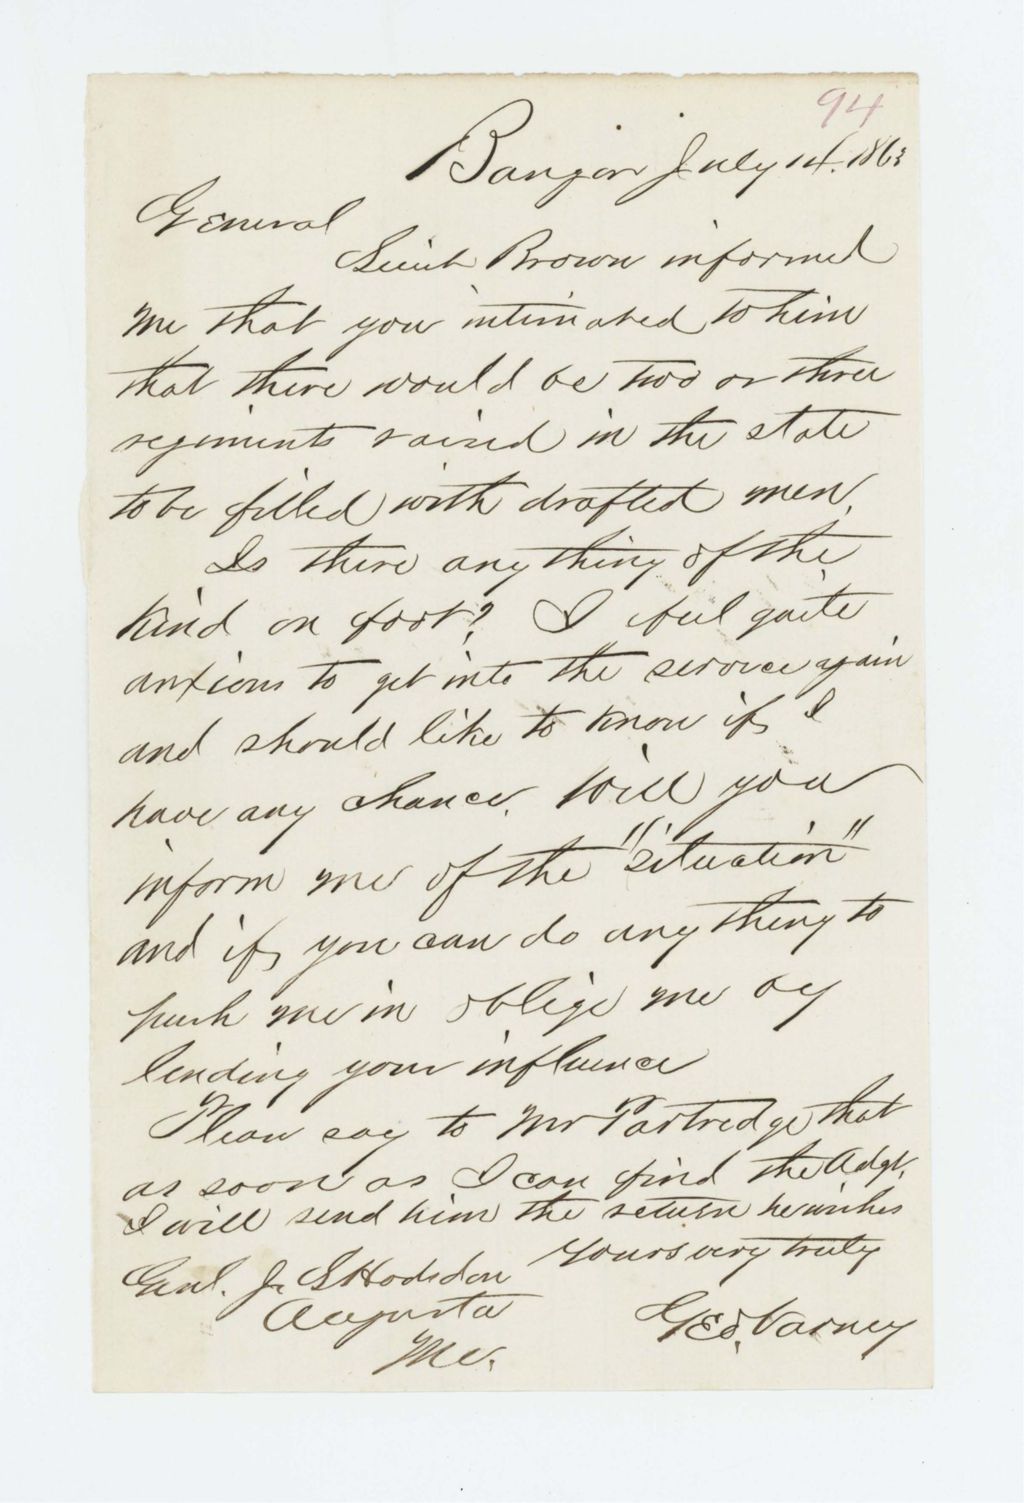 94
Bangor July 14. 1863
General
Lieut Brown informed
me that you intimated to him
that there would be two or three
regiments raised in the state
to be filled with drafted men.
Is there any thing of the
kind on foot? I feel quite
anxious to get into the service again
and should like to know if I
have any chance. Will you
inform me of the "situation"
and if you can do any thing to
push me in oblige me by
lending your influence
Please say to Mr Partredge that
as soon as I can find the Adgt.
I will send him the return he wishes
Yours very truly
Genl. J. L Hodsdon
Augusta
Me.
Geo. Varney